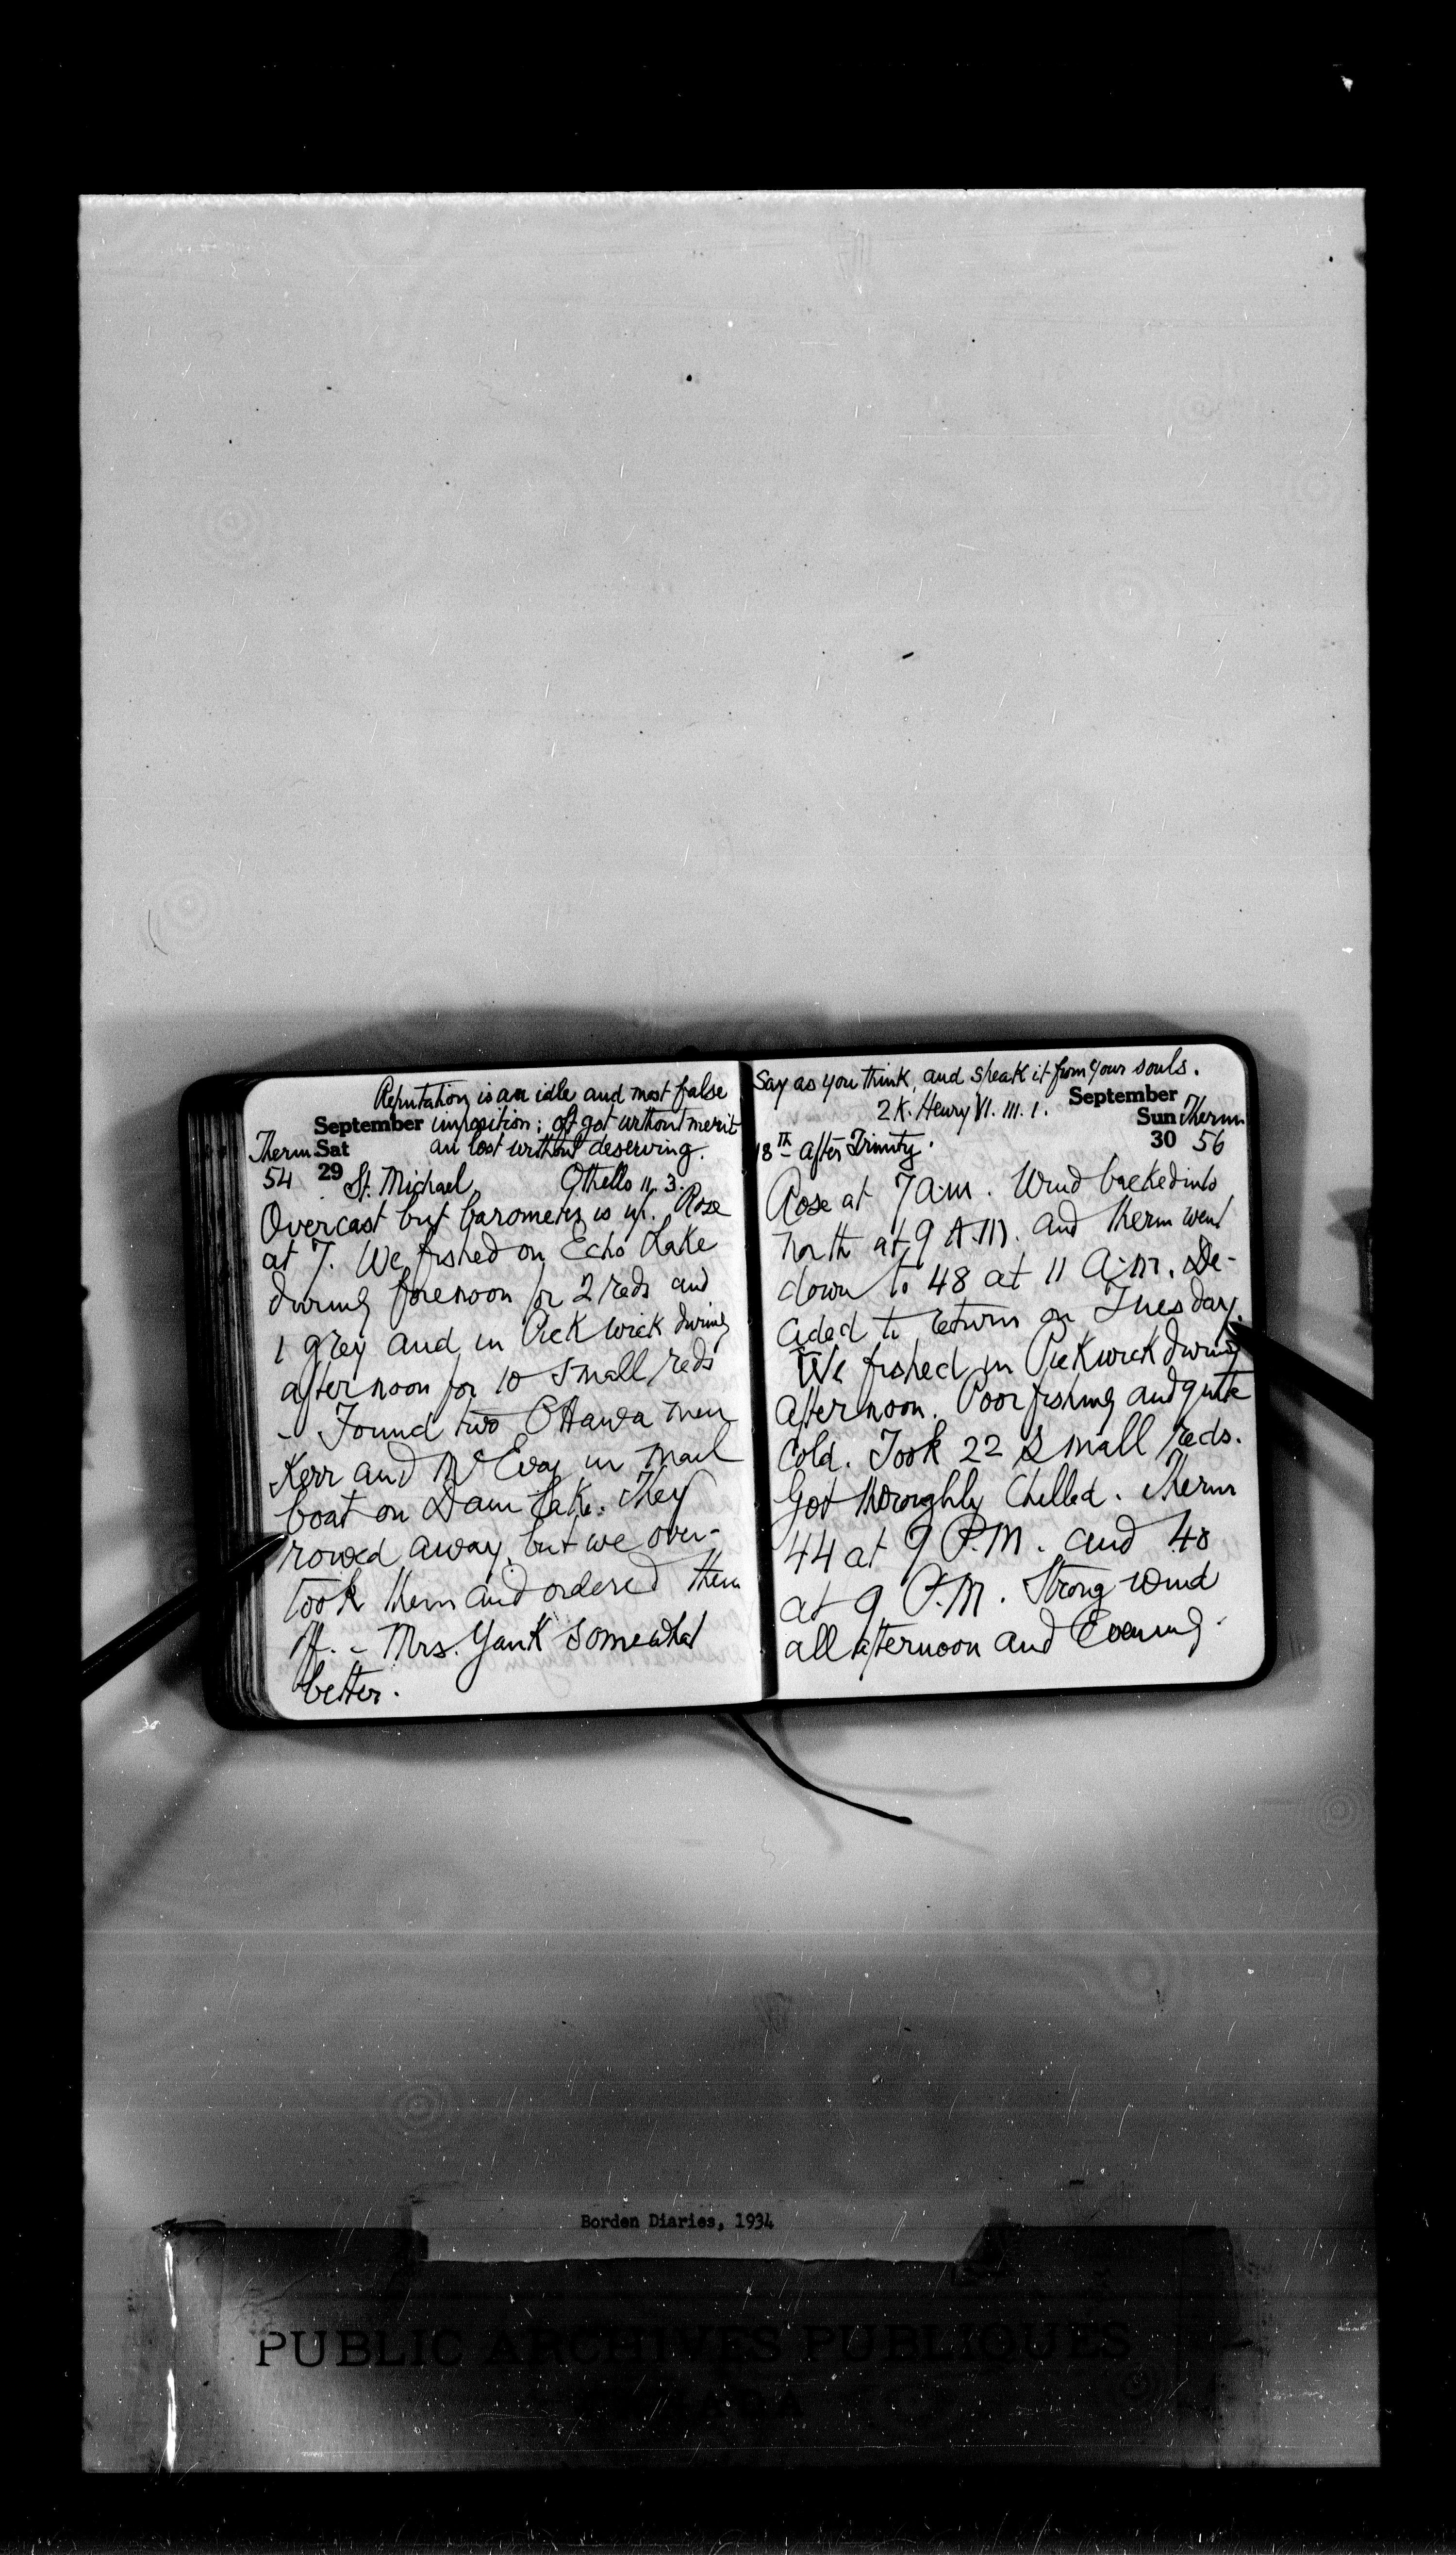 Reputation is an idle and most false
September imposition; oft got without merit
Therm Sat an lost without deserving.
54 29 St. Michael Othello II. 3.
Overcast but barometer is up. Rose
at 7. We fished on Echo Lake
during forenoon for 2 reds and
1 grey and in Pickwick during
afternoon for 10 small reds
- Found two Ottawa men
Kerr and McEvoy in mail
boat on Dam Lake. They
rowed away, but we over-
took them and ordered them
off. - Mrs. Yank somewhat
better.
Say as you think, and speak it from your souls.
2 K. Henry VI. III. 1. September
Sun Therm
18th after Trinity. 30 56
Rose at 7 a.m. Wind backed into
north at 9 A.M. and therm went
down to 48 at 11 a.m. De-
cided to return on Tuesday.
We fished in Pickwick during
afternoon. Poor fishing and quite
cold. Took 22 small reds.
Got thoroughly chilled. Therm
44 at 9 P.M. and 40
at 9 P.M. Strong wind
all afternoon and Evening.
Borden Diaries, 1934
PUBLIC ARCHIVES PUBLIQUES
CANADA